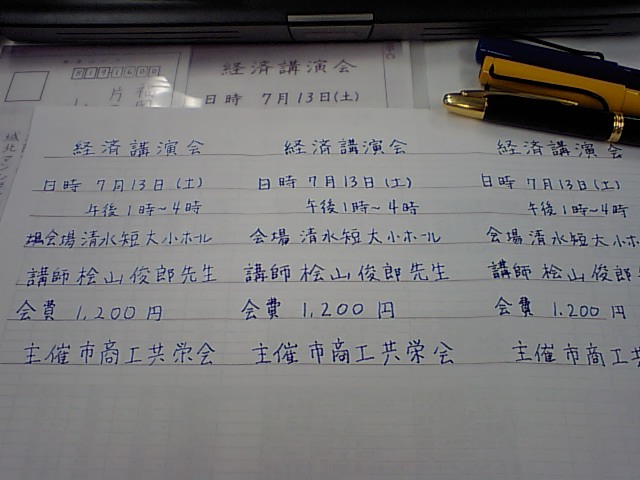 8191600
経済講演会
日時 7月13日(土)
経済講演会
日時 7月13日(土)
午後1時～4時
会場 清水短大小ホール
講師 桧山俊郎先生
会費 1,200円
主催市商工共栄会
経済講演会
日時 7月13日(土)
午後1時～4時
会場 清水短大小ホール
講師 桧山俊郎先生
会費 1,200円
主催市商工共栄会
経済講演会
日時 7月13日(土)
午後1時～4時
会場 清水短大小ホ
講師 桧山俊郎
会費 1.200円
主催市商工